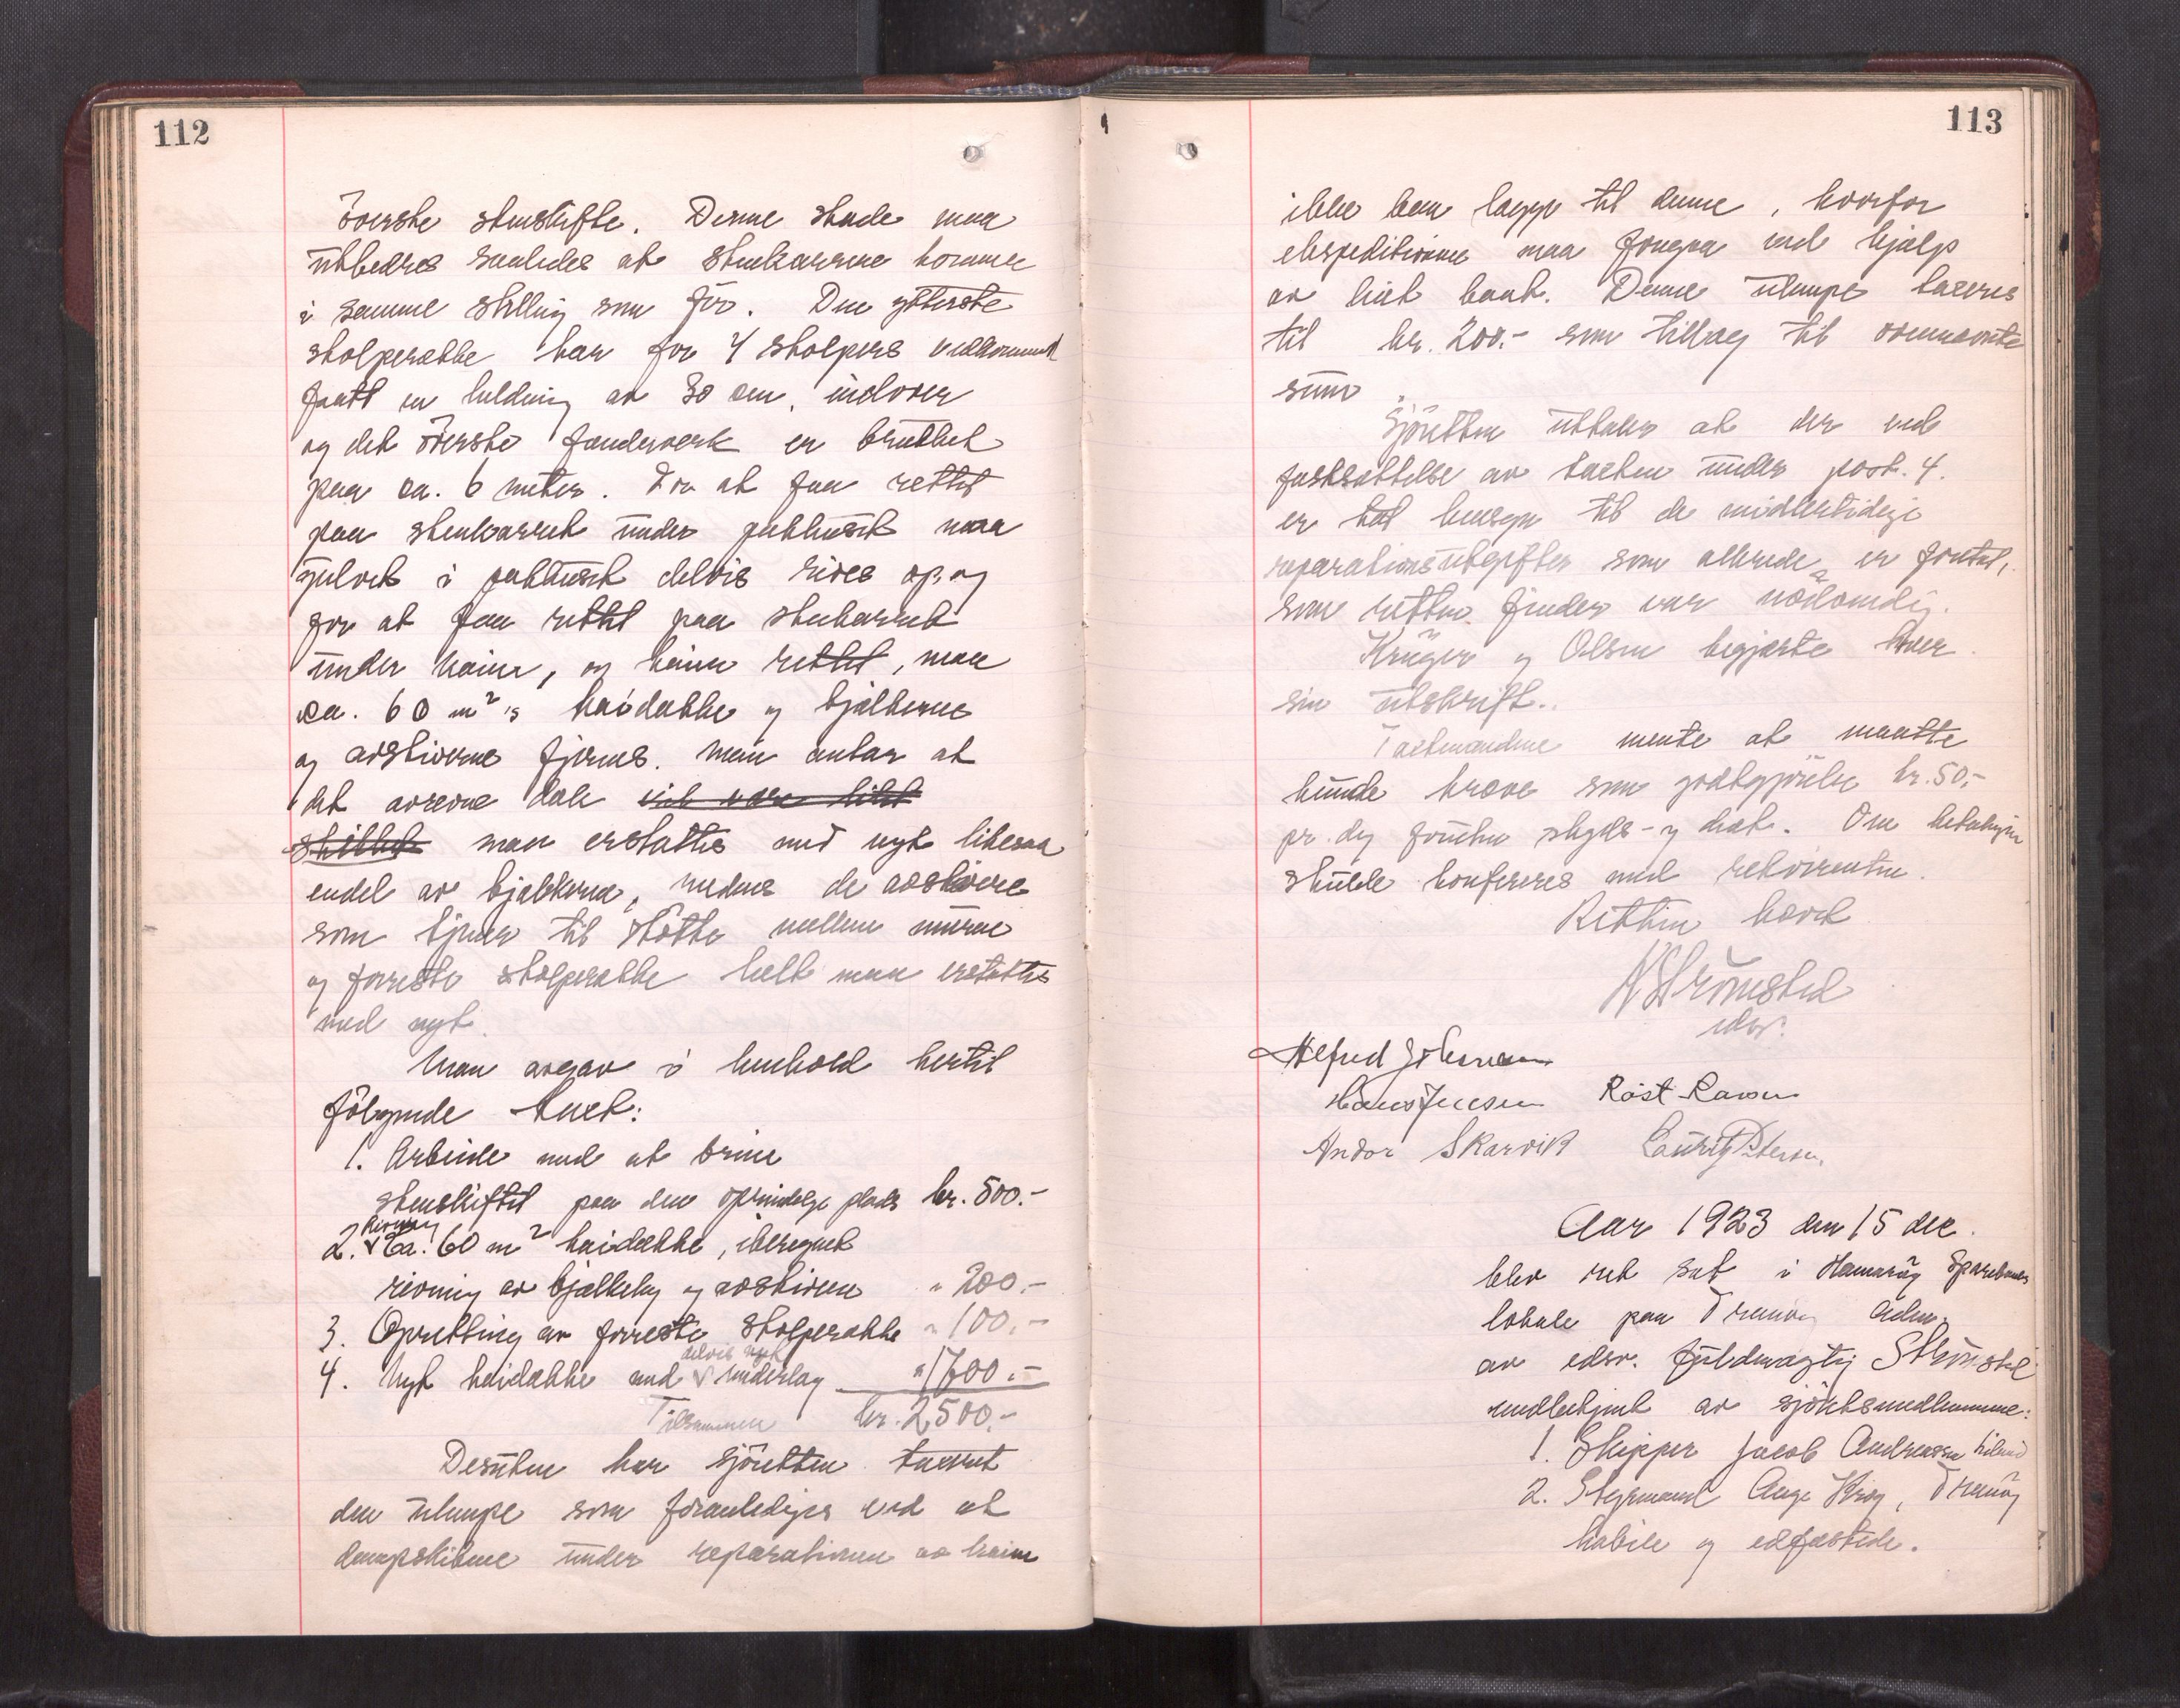 112
överste stenskifte. Denne skade maa
utbedres saaledes at stenkarrene kommer
i samme stilling som för. Den ytterste
stolperække har for 4 stolpers vedkommend
faatt en heldning av 30 cm. indover
og det överste fenderverk er brukket
paa ca. 6 meter. For at faa rettet
paa stenkarret under pakhuset maa
gulvet i pakhuset delvis rives op og
for at faa rettet paa stenkarret
under kaien, og kaien rettet, maa
ca. 60 m²'s kaidække og bjælkerne
og avstiverne fjernes. Man antar at
det avrevne dæk vil være likt
skikket maa erstattes med nyt likesaa
endel av bjælkerne, medens de avstivere
som tjener til stötte mellem murene
og forreste stolperække helt maa erstattes
med nyt.
Man avgav i henhold hertil
fölgende takst:
1. Arbeide med at bringe
stenskiftet paa den oprindelige plads kr. 500.-
rivning
2. Ca. 60 m² kaidække, iberegnet
rivning av bjælkelag og avstivere " 200.-
3. Opretting av forreste stolperække " 100.-
delvis nyt
4. Nyt kaidække med underlag " 1700.-
Tilsammen kr. 2500.-
Desuten har sjöretten taxeret
den ulempe som foranlediges ved at
dampskibene under reparationen av kaien
113
ikke kan lægge til denne, hvorfor
ekspeditionen maa foregaa ved hjælp
av liten baat. Denne ulempe taxeres
til kr. 200.- som tillæg til ovennævnte
sum.
Sjöretten uttaler at der ved
fastsættelse av taksten under post. 4.
er tat hensyn til de midlertidige
reparationsutgifter som allerede er foretat,
som retten finder var nödvendig.
Krüger og Olsen begjærte hver
sin utskrift.
Takstmændene mente at maatte
kunde kræve som godtgjörelse kr. 50.-
pr. dag foruten skyds- og diæt. Om betalingen
skulde konfereres med rekvirenten.
Retten hævet
N Strömsted
edsv.
Alfred Johansen
Hans Jensen Röst Larsen
Andor Skarvik Lauritz Petersen.
Aar 1923 den 15 dec.
blev ret sat i Hamaröy Sparebanks
lokale paa Tranöy adm.
av edsv. fuldmægtig Strömsted
medbetjent av sjöretsmedlemmene:
1. Skipper Jacob Andreassen
2. Styrmand Aage Krog, Tranöy
habile og edfæstede.